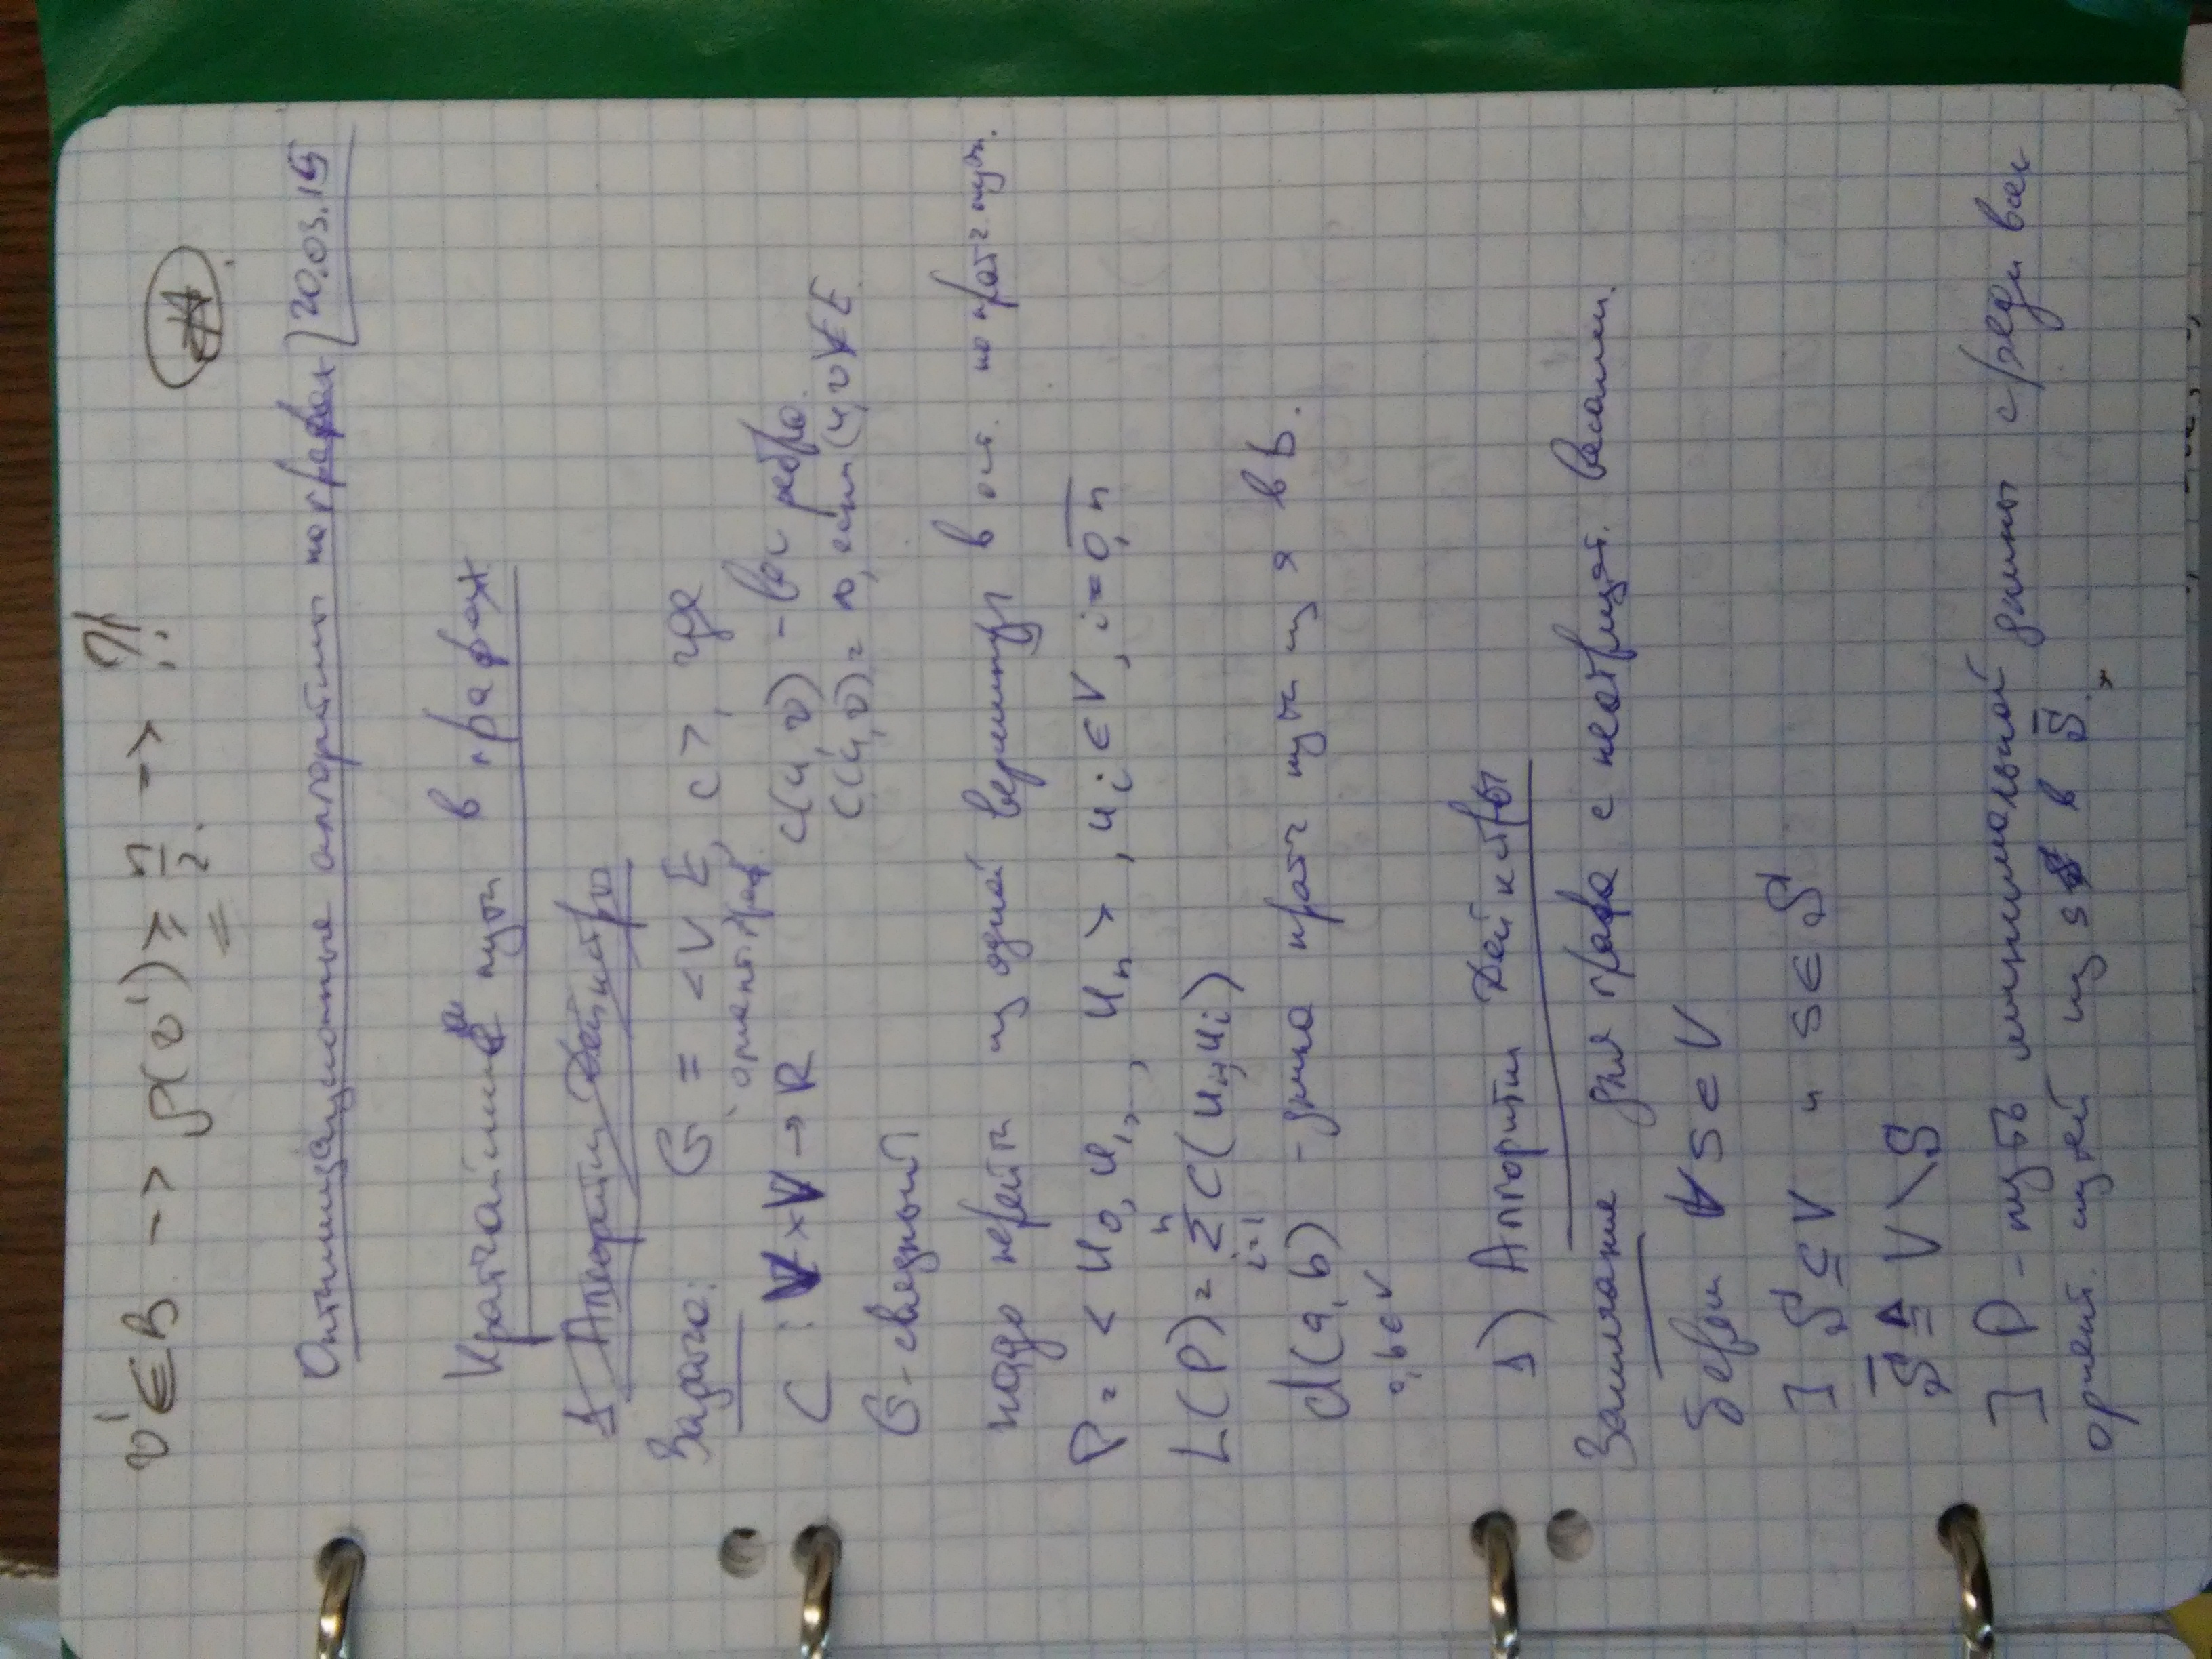 v' ∈ B → ρ(v') ≥ n/2. => ?!
Оптимизационные алгоритмы на графах 20.03.15
Кратчайшие пути в графах
1 Алгоритм Дейкстры
Задача: G = <V, E, c>, где
ориент. граф.
C : V × V → R c(u, v) - вес ребра.
c(u, v) = ∞, если (u, v) ∉ E.
G - связный
надо перейти из одной вершины в ост. по кратч пути.
P = < u₀, u₁, ..., uₙ >, uᵢ ∈ V, i = 0,n
L(P) = Σ c(uᵢ₋₁, uᵢ)
i=1 n
d(a, b) - длина кратч пути из a в b.
a, b ∈ V
1) Алгоритм Дейкстры
Замечание для графа с неотрицат. весами.
берем ∀ s ∈ V
] S ⊆ V и s ∈ S
S̄ ≜ V \ S
] P - путь минимальной длины среди всех
ориент. путей из s в S̄.